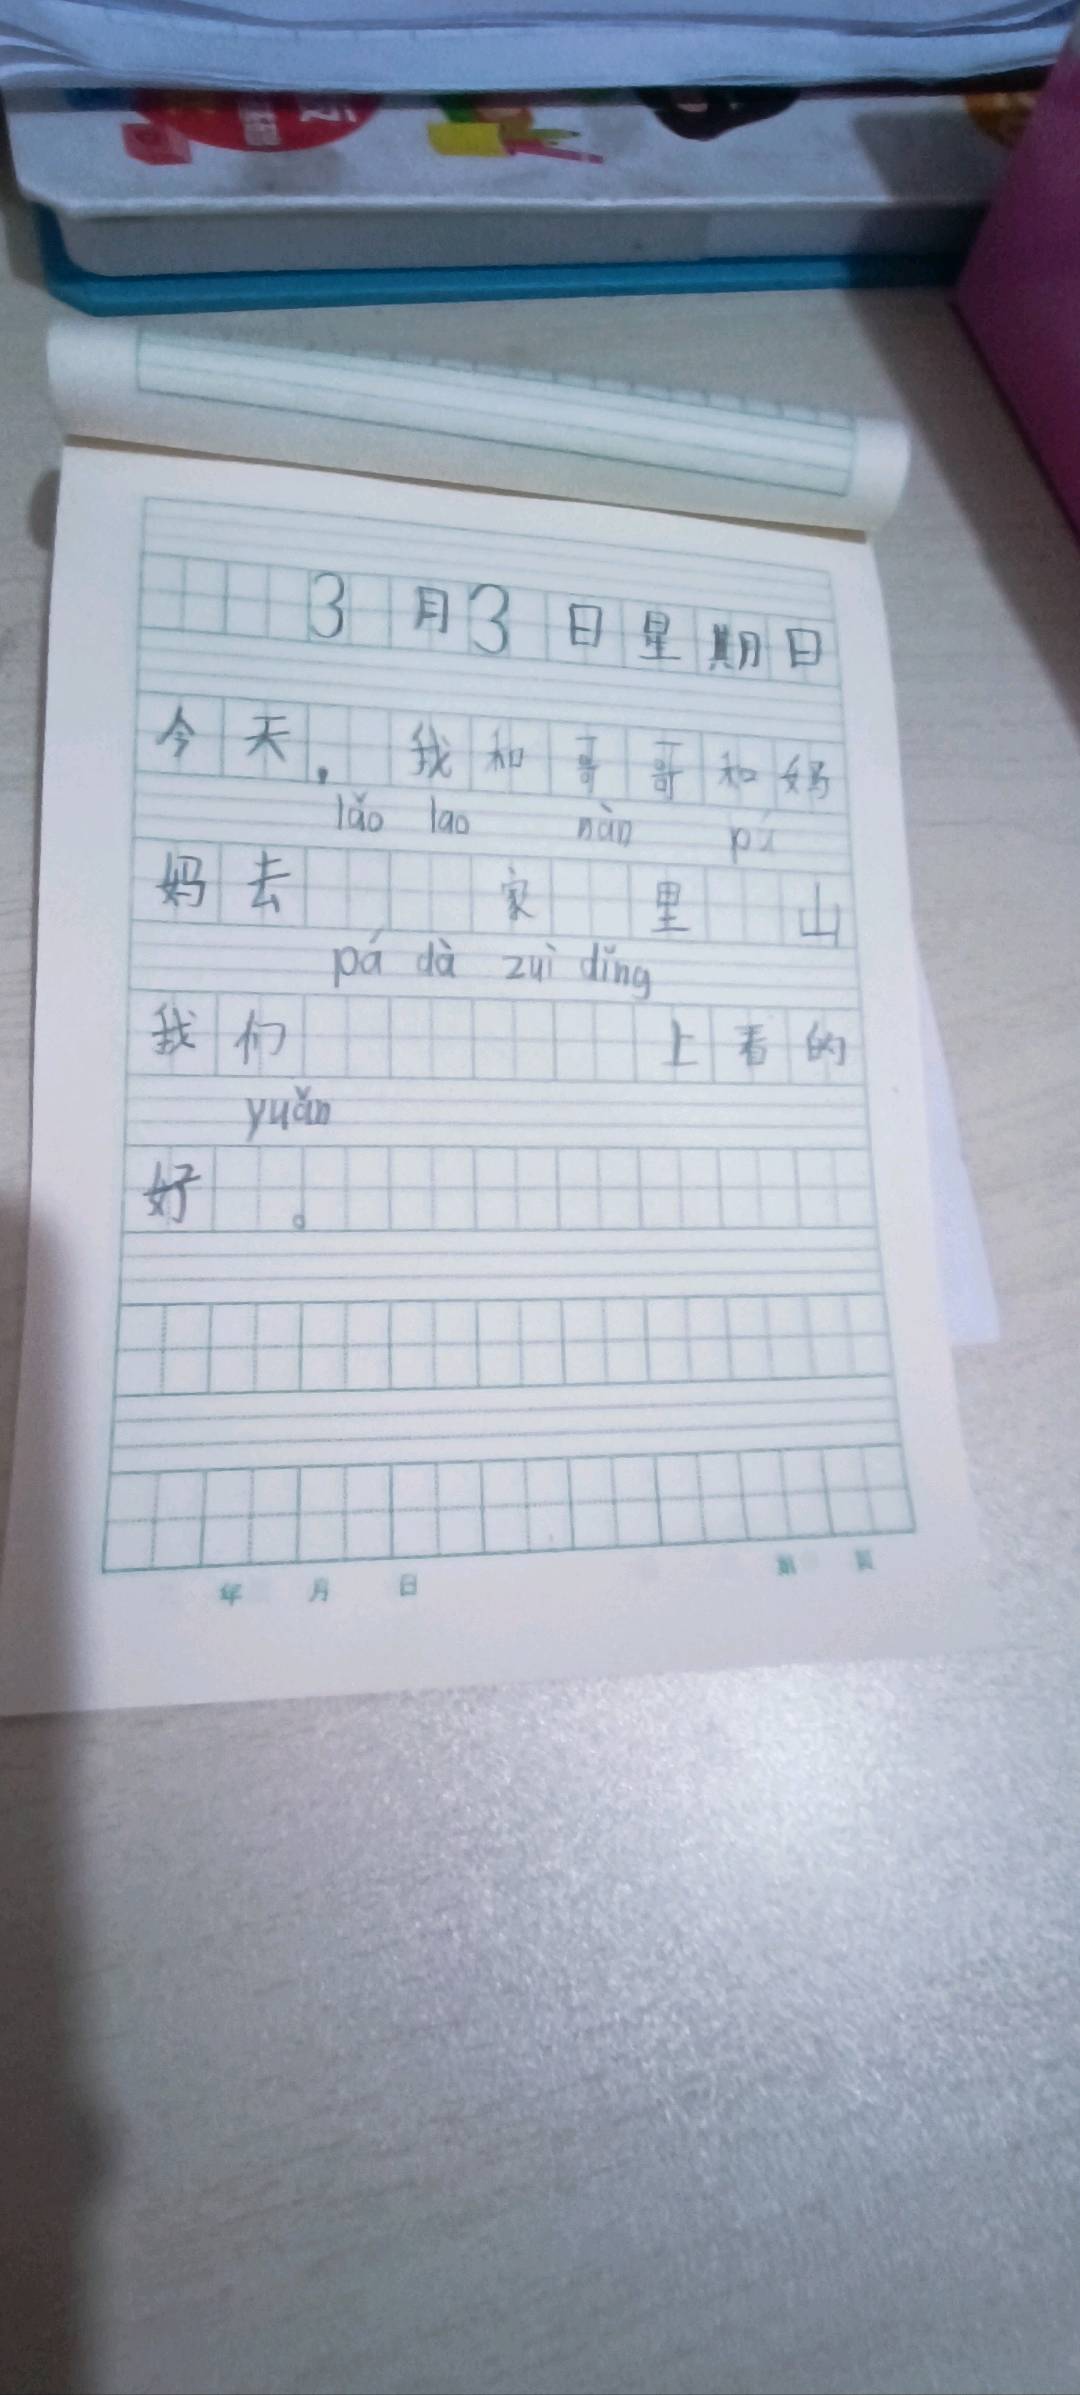 3月3日星期日
今天，我和哥哥和妈
lǎo lao nàn pá
妈去 家 里 山
pá dà zuì dǐng
我们 上看的
yuǎn
好 。
年 月 日 第 页